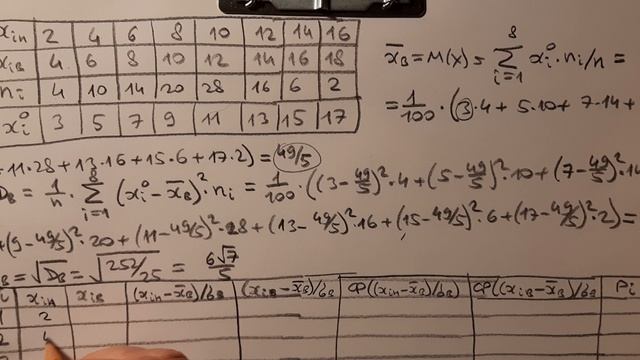 xiн 2 4 6 8 10 12 14 16
xiв 4 6 8 10 12 14 16 18
ni 4 10 14 20 28 16 6 2
xi° 3 5 7 9 11 13 15 17
x̄в = M(X) = Σ i=1 8 xi° · ni/n =
= 1/100 · (3·4 + 5·10 + 7·14 +
+ 11·28 + 13·16 + 15·6 + 17·2) = 49/5
Dв = 1/n · Σ i=1 8 (xi° - x̄в)² · ni = 1/100 · ((3 - 49/5)² · 4 + (5 - 49/5)² · 10 + (7 - 49/5)² · 14
+ (9 - 49/5)² · 20 + (11 - 49/5)² · 28 + (13 - 49/5)² · 16 + (15 - 49/5)² · 6 + (17 - 49/5)² · 2) =
в = √Dв = √252/25 = 6√7/5
i xiн xiв (xiн - x̄в)/бв (xiв - x̄в)/бв Ф((xiн - x̄в)/бв) Ф((xiв - x̄в)/бв) Pi
1 2
2 4